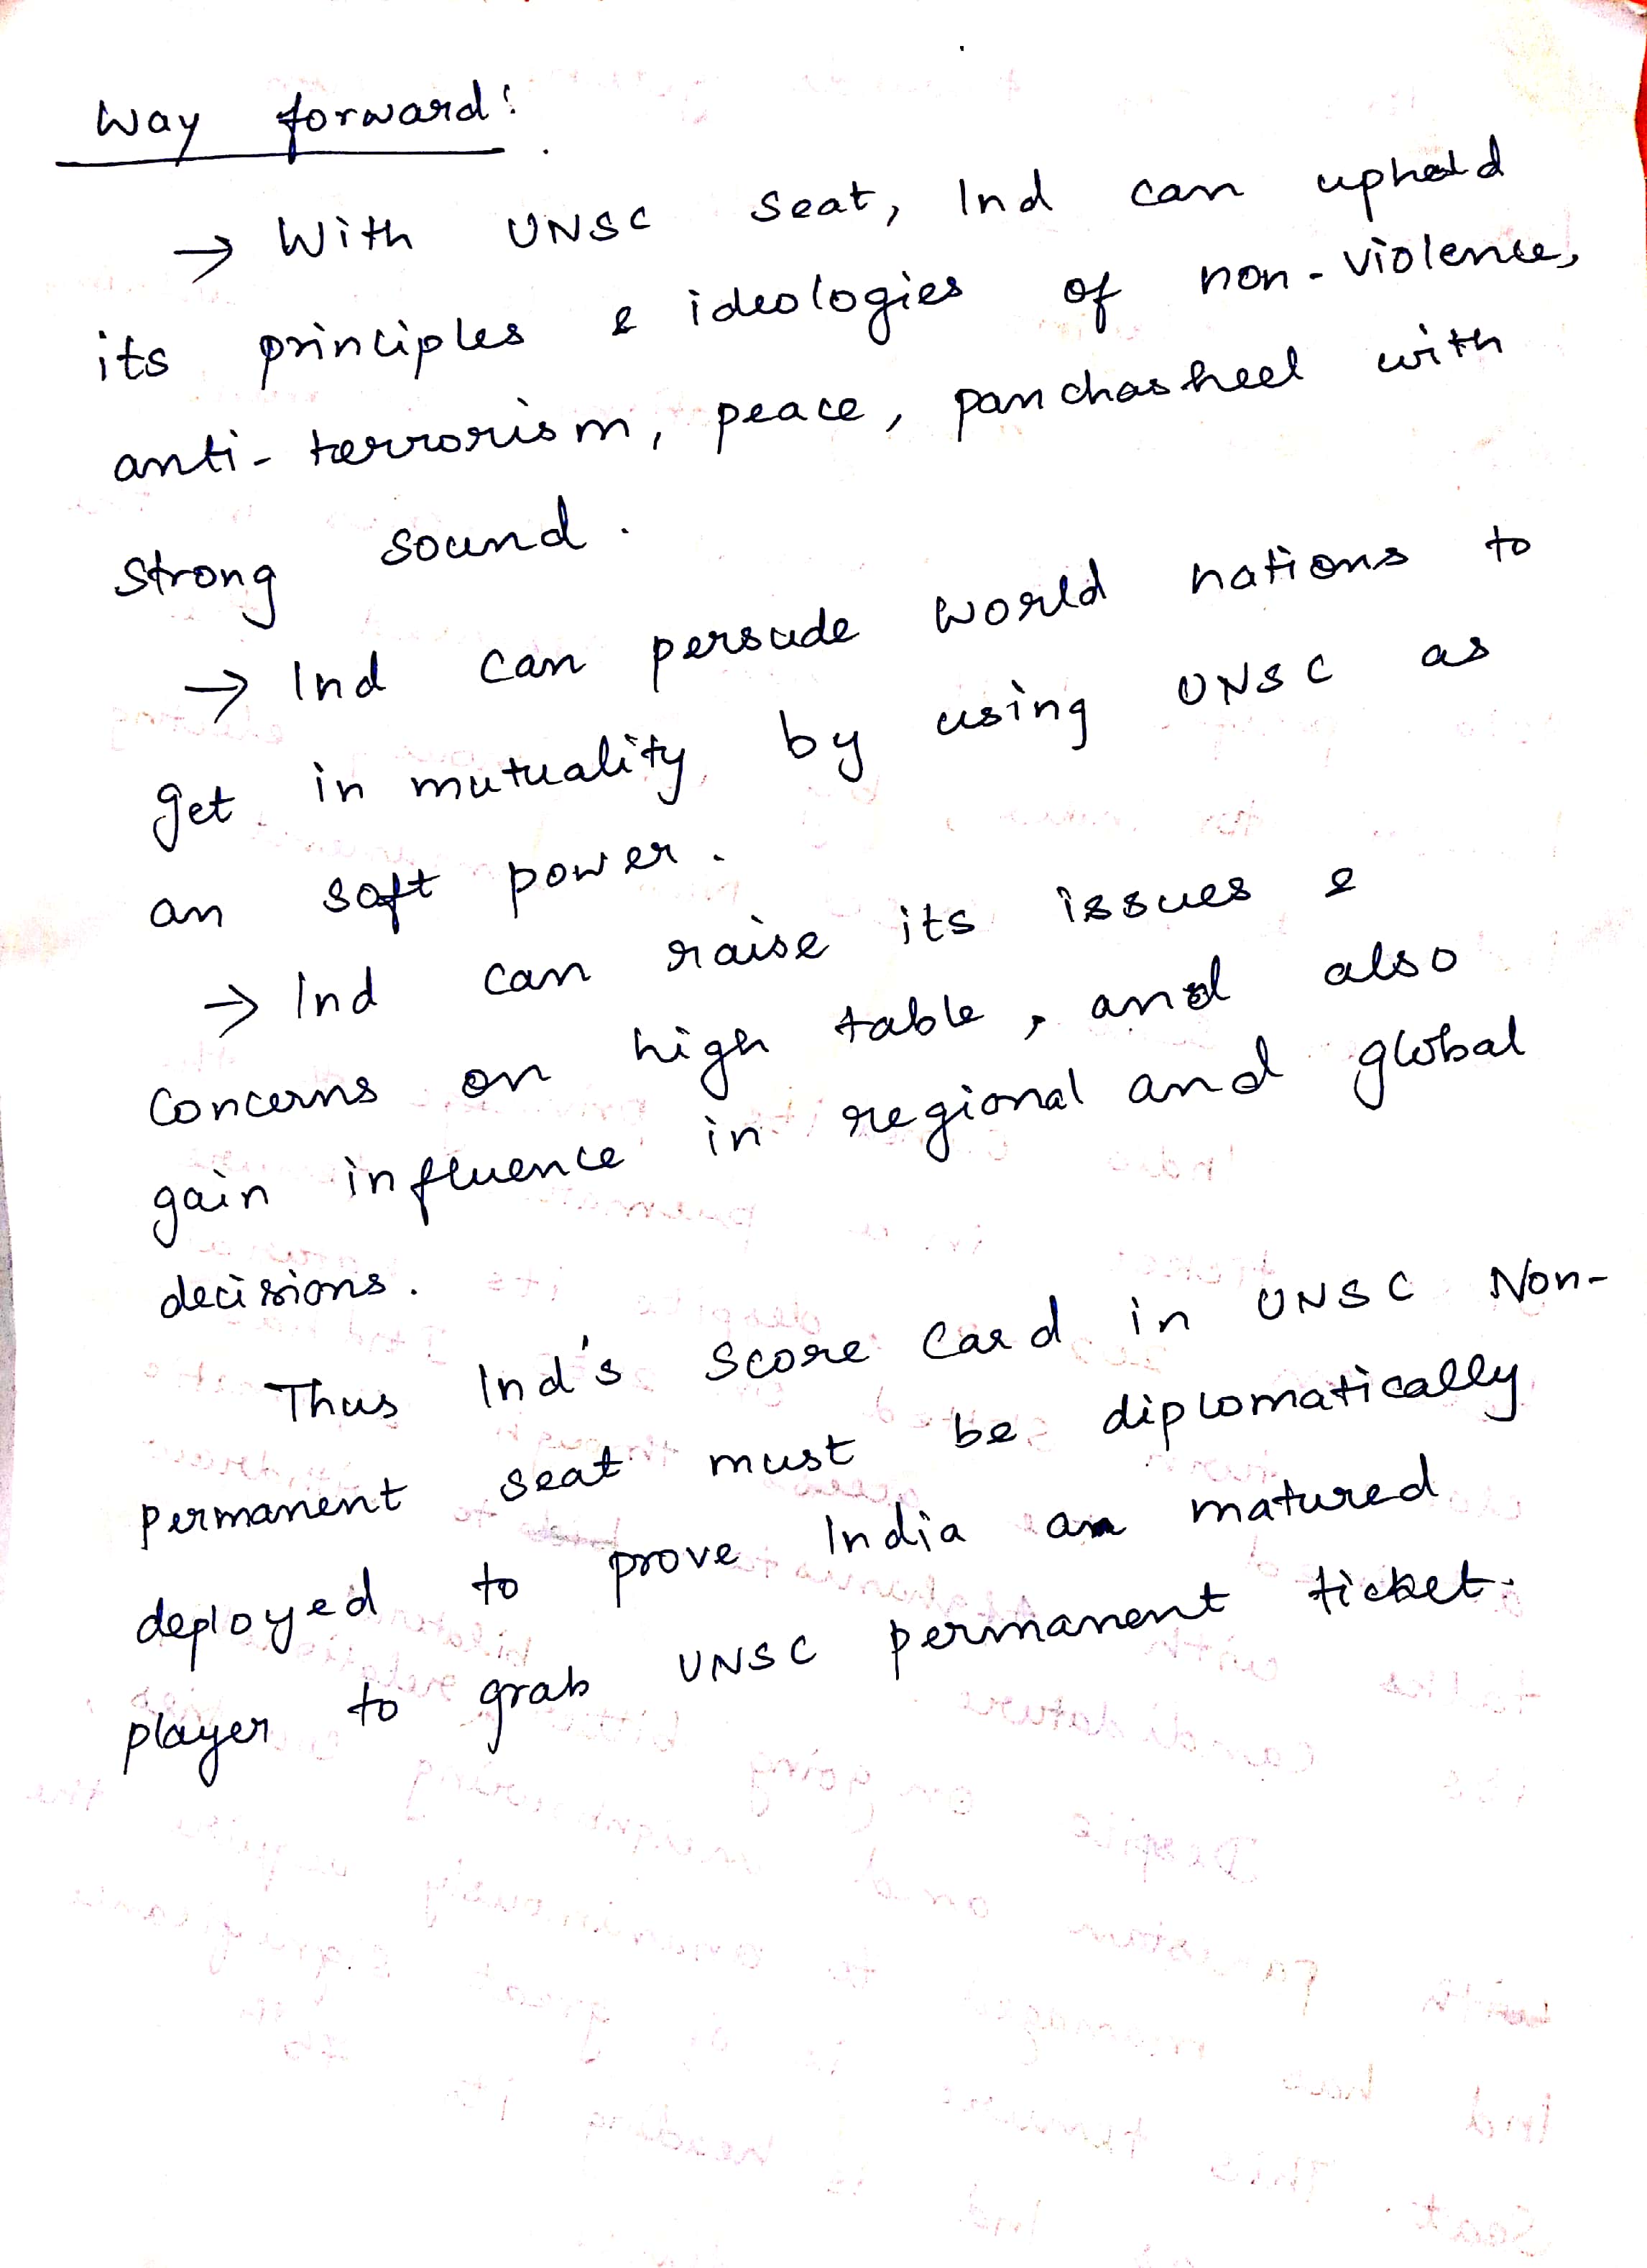 Way forward:
→ With UNSC seat, Ind can uphold
its principles & ideologies of non-violence,
anti-terrorism, peace, panchasheel with
strong sound.
→ Ind can persude world nations to
get in mutuality by using UNSC as
an soft power.
→ Ind can raise its issues &
concerns on high table, and also
gain influence in regional and global
decisions.
Thus Ind's score card in UNSC Non-
permanent seat must be diplomatically
deployed to prove India as matured
player to grab UNSC permanent ticket.